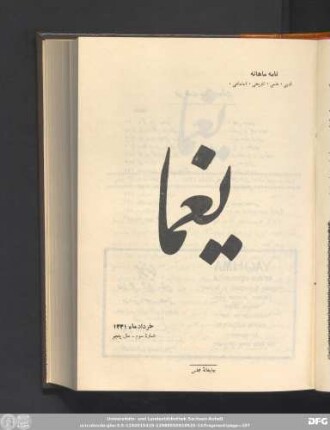 نامه ماهانه
ادبی - علمی - تاریخی - اجتماعی -
یغما
خرداد ماه ۱۳۳۱
شمارهٔ سوم - سال پنجم
چاپخانهٔ مجلس
Universitäts- und Landesbibliothek Sachsen-Anhalt
DFG